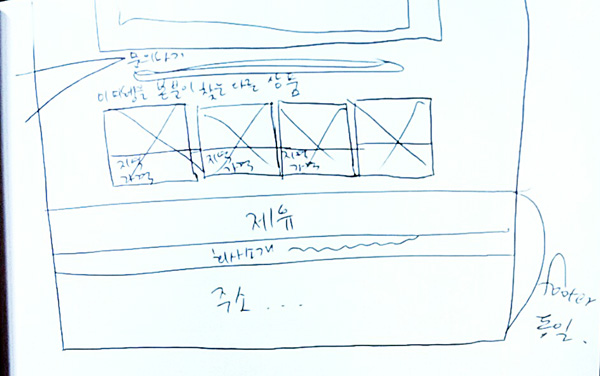 문의하기
이 모델을 본 분이 찾는 다른 상품
지역 지역 지역
가격 가격 가격
제휴
회사소개
주소 . . .
footer
통일.